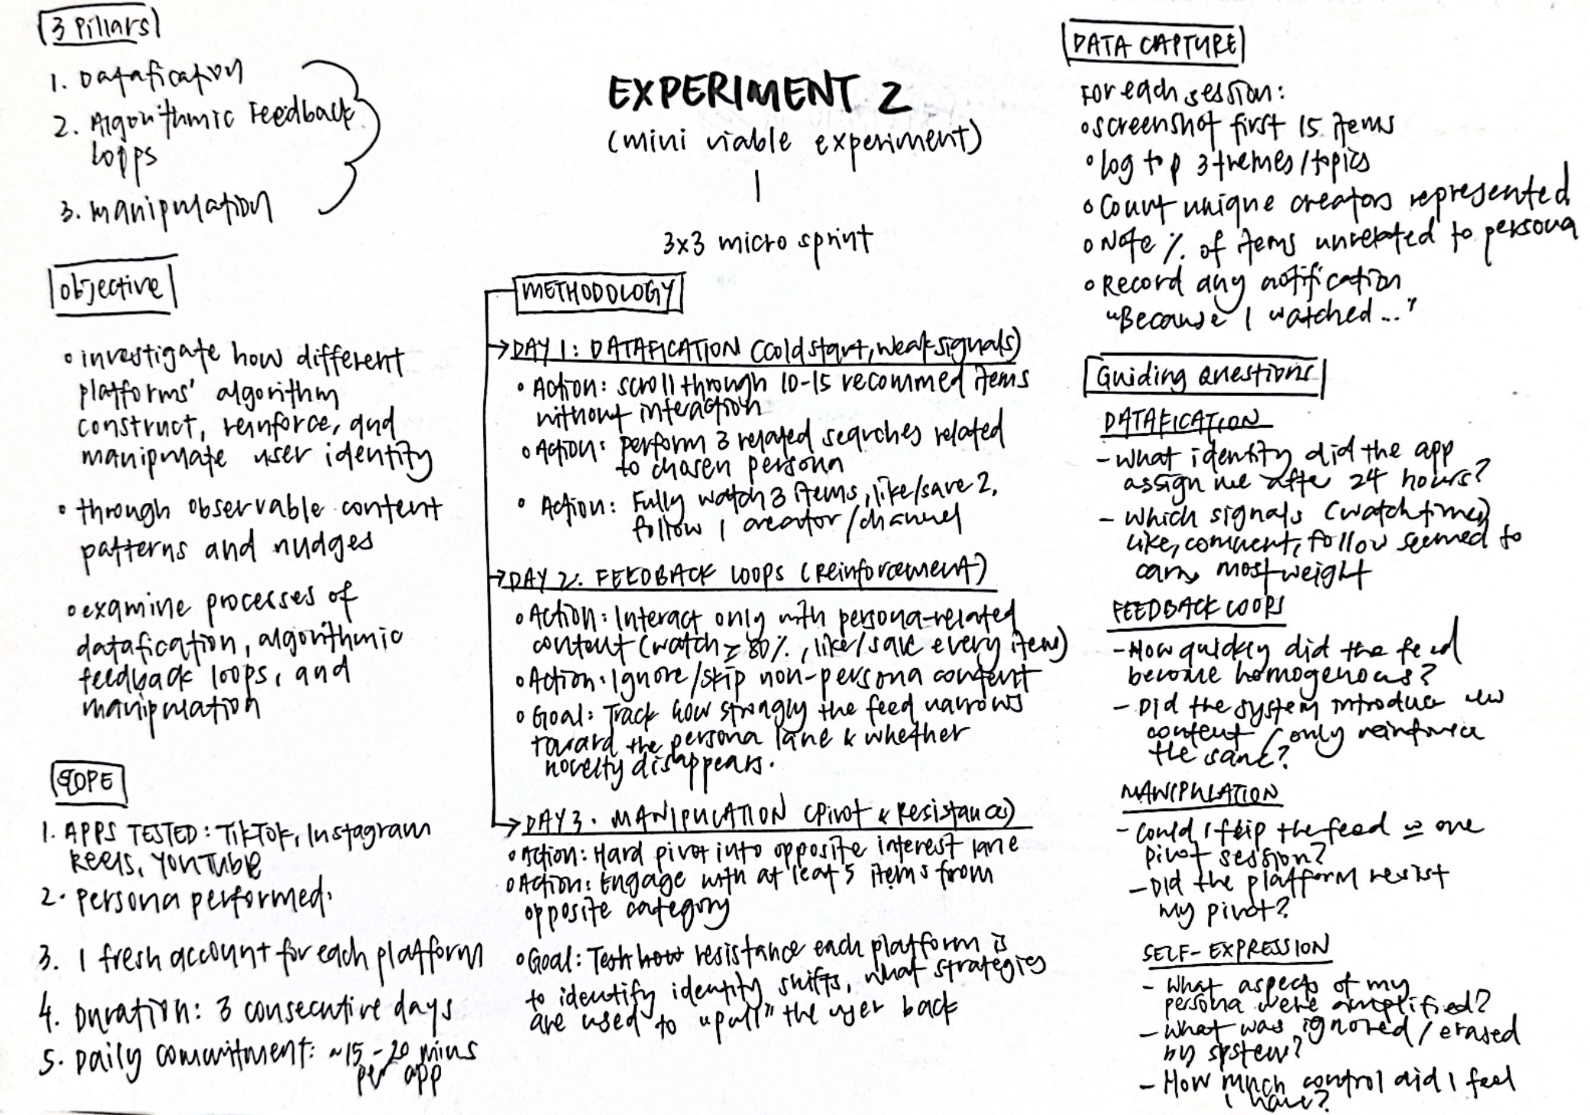 3 Pillars
1. Datafication
2. Algorithmic Feedback
loops
3. manipulation
objective
• investigate how different
platforms' algorithm
construct, reinforce, and
manipulate user identity
• through observable content
patterns and nudges
• examine processes of
datafication, algorithmic
feedback loops, and
manipulation
SCOPE
1. APPS TESTED: TikTok, Instagram
Reels, YouTube
2. Persona performed.
3. 1 fresh account for each platform
4. Duration: 3 consecutive days
5. Daily commitment: ~15-20 mins
per app
EXPERIMENT 2
(mini viable experiment)
3x3 micro sprint
METHODOLOGY
DAY 1: DATAFICATION (cold start, weak signals)
• Action: scroll through 10-15 recommed items
without interaction
• Action: perform 3 related searches related
to chosen persona
• Action: Fully watch 3 items, like/save 2,
follow 1 creator/channel
DAY 2. FEEDBACK LOOPS (reinforcement)
• Action: Interact only with persona-related
content (watch ≥ 80%, like/save every item)
• Action: Ignore/skip non-persona content
• Goal: Track how strongly the feed narrows
toward the persona lane & whether
novelty disappears.
DAY 3. MANIPULATION (Pivot & Resistance)
• Action: Hard pivot into opposite interest lane
• Action: Engage with at leat 5 items from
opposite category
• Goal: Test how resistance each platform is
to identify identity shifts, what strategies
are used to "pull" the user back
DATA CAPTURE
For each session:
• screenshot first 15 items
• log top 3 themes/topics
• Count unique creators represented
• Note % of items unrelated to persona
• Record any notification
"Because I watched..."
Guiding Questions
DATAFICATION
- What identity did the app
assign me after 24 hours?
- Which signals (watchtime)
like, comment, follow seemed to
carry most weight
FEEDBACK LOOPS
- How quickly did the feed
become homogenous?
- Did the system introduce new
content / only reinforce
the same?
MANIPULATION
- Could I flip the feed in one
pivot session?
- Did the platform resist
my pivot?
SELF-EXPRESSION
- What aspects of my
persona were amplified?
- What was ignored/erased
by system?
- How much control did I feel
I have?